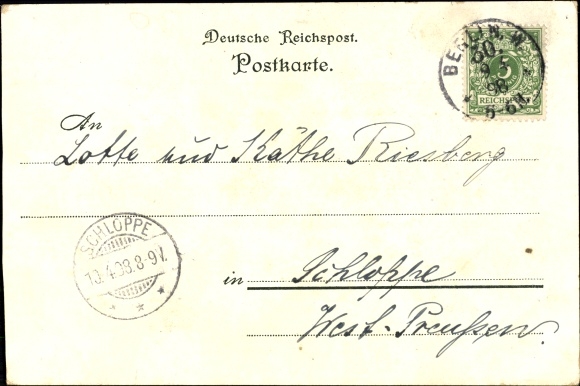 Deutsche Reichspost.
Postkarte.
BERLIN, W.
30.
9 5
98
5-6N.
5
REICHSPOST
An
Lotte und Käthe Riesberg
SCHLOPPE
10.4.98.8-9V.
in Schloppe
West-Preußen.